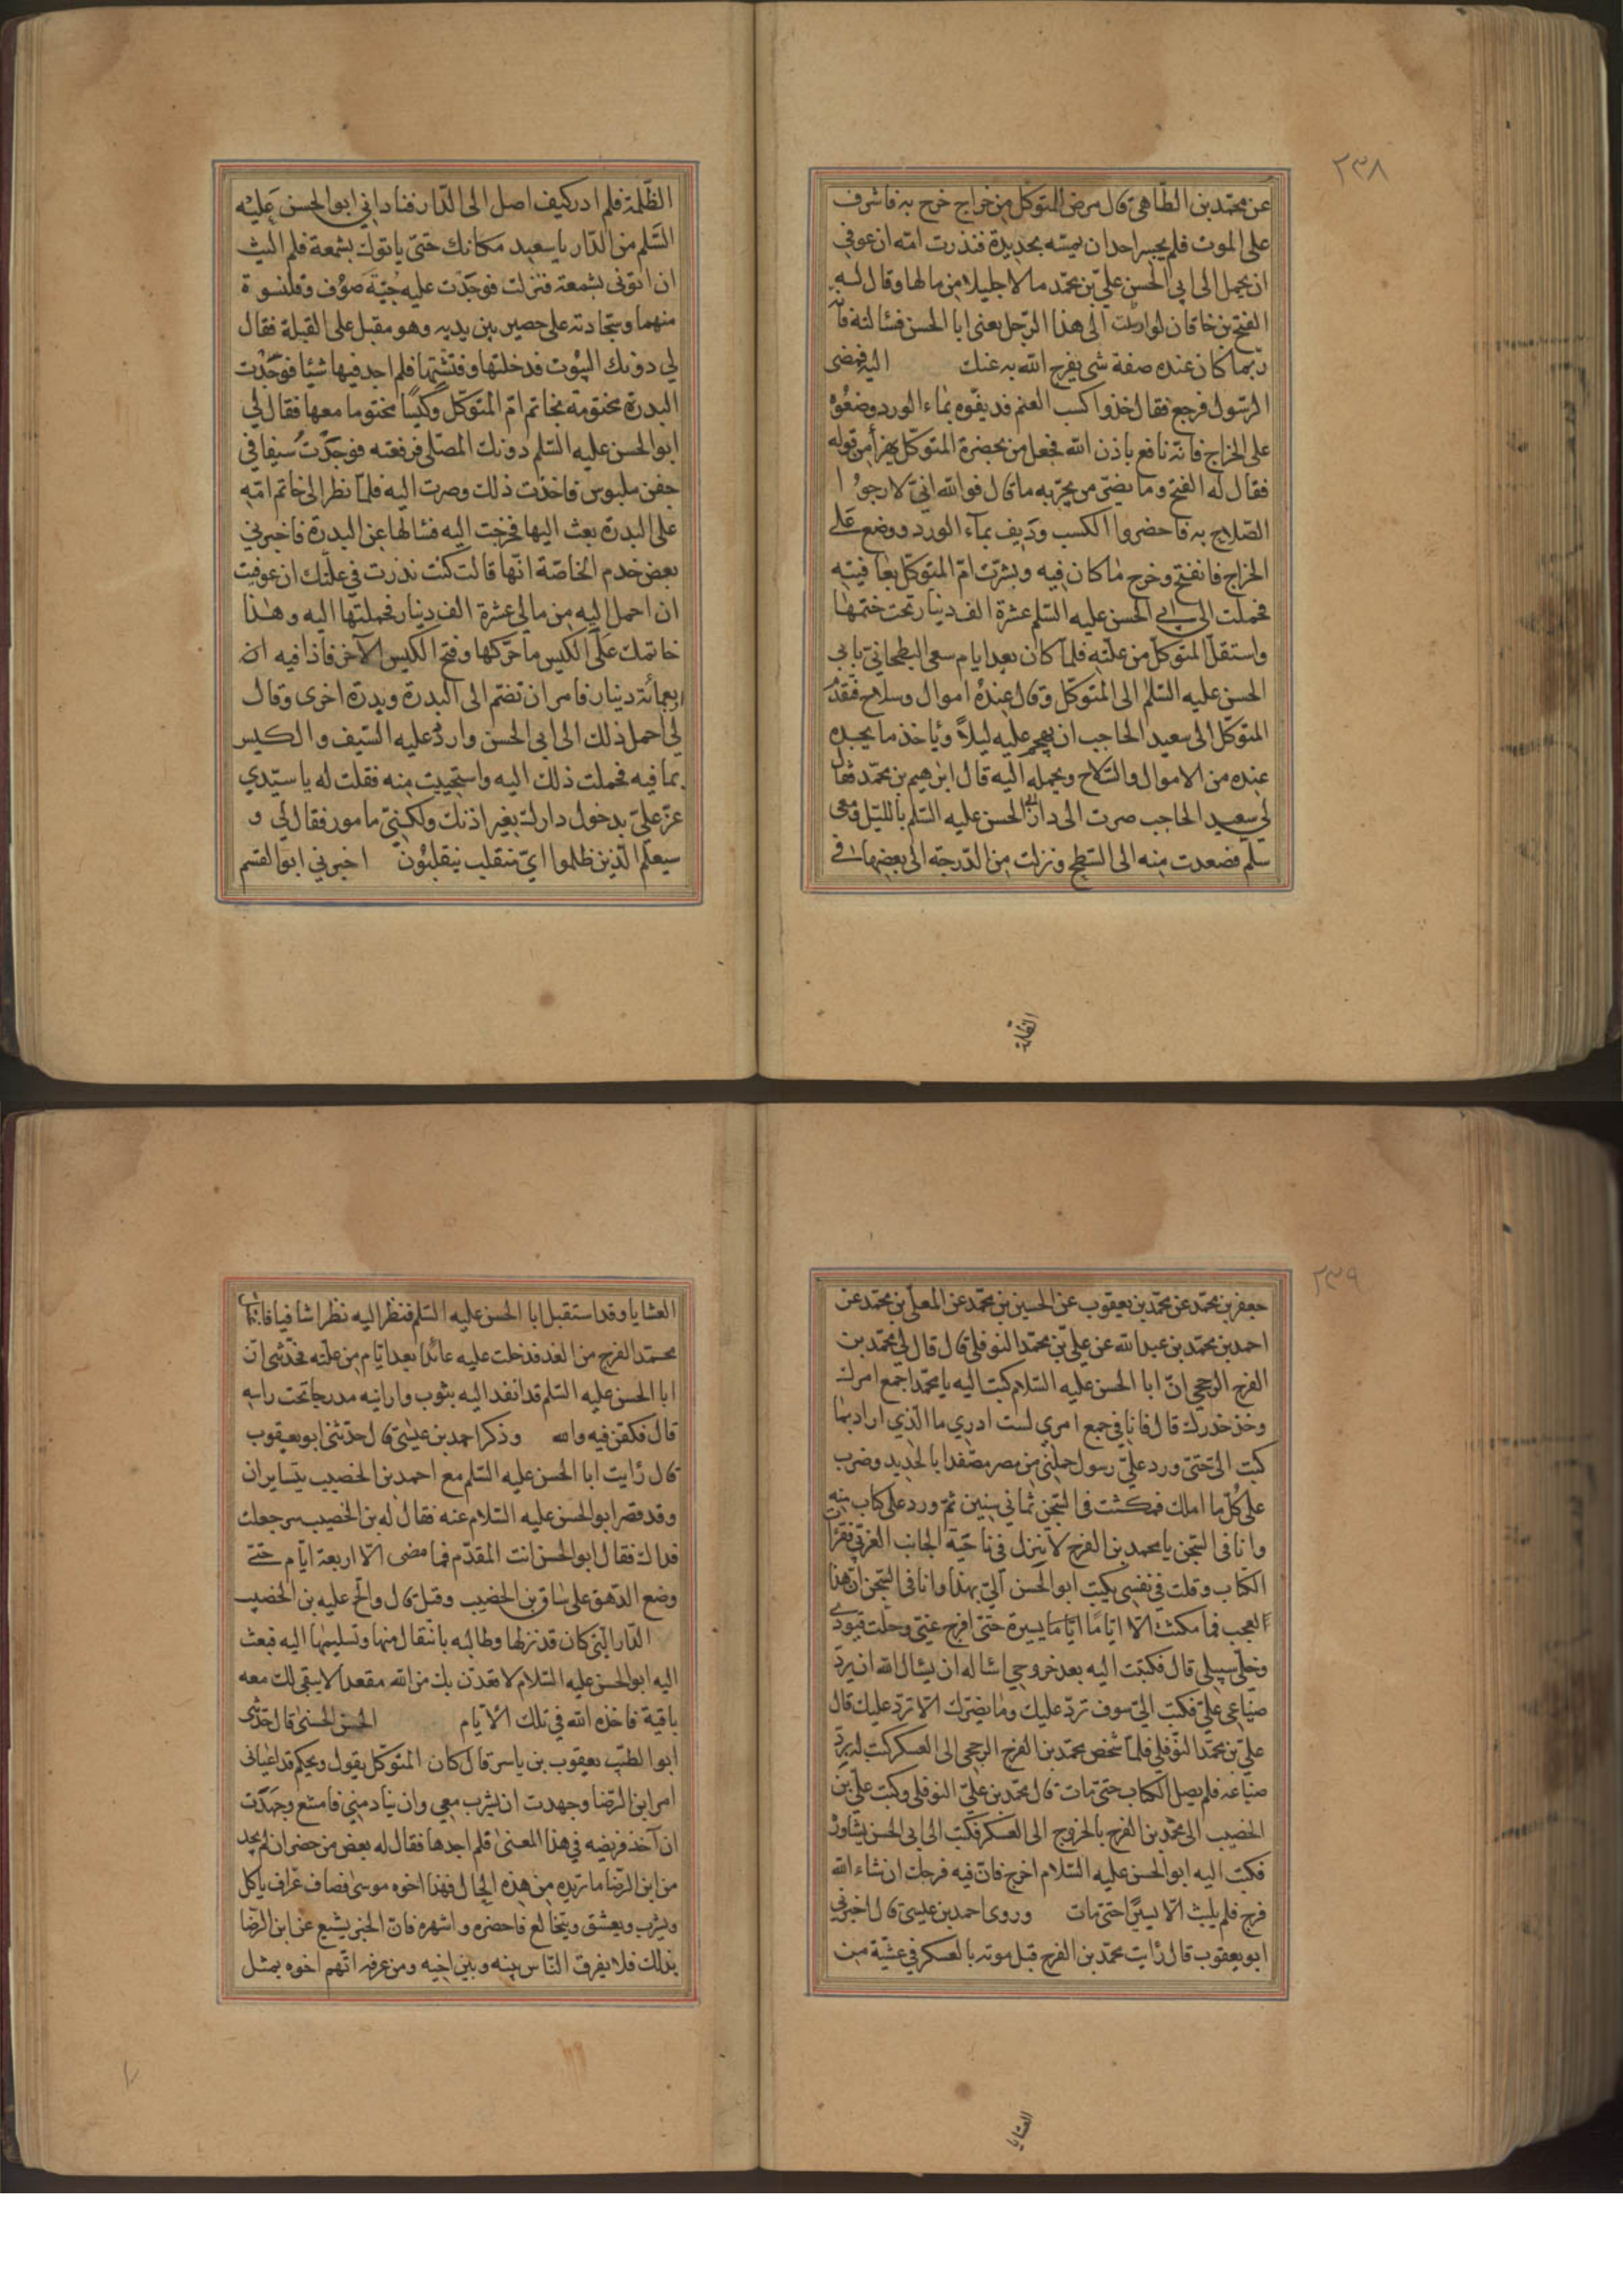 ٢٣٨
عن محمّد بن الطاهى قال مرض المتوكل من خراج خرج به فاشرف
على الموت فلم يجسر احد ان يمسّه بحديدة فنذرت امّه ان عوفي
ان يحمل الى ابي الحسن عليّ بن محمّد مالا جليلا من مالها وقال له
الفتح بن خاقان لو ارسلت الى هذا الرّجل يعنى ابا الحسن فسالته فانّه
ربّما كان عنده صفة شى يفرج الله به عنك اليه فمضى
الرّسول فرجع فقال خذوا كسب الغنم فديفوه بماء الورد وضعوه
على الخراج فانّه نافع باذن الله فجعل من بحضرة المتوكّل يهزأ من قوله
فقال له الفتح وما يضرّ من تجربه ما قال فوالله انّي لارجوا
الصّلاح به فاحضروا الكسب وديف بمآء الورد ووضع على
الخراج فانفتح وخرج ما كان فيه وبشرت امّ المتوكّل بعافيته
فحملت الى ابي الحسن عليه السّلم عشرة الف دينار تحت ختمها
واستقلّ المتوكّل من علّته فلمّا كان بعد ايام سعى البطحاني بابي
الحسن عليه السّلم الى المتوكّل وقال عنده اموال وسلاح فتقدّم
المتوكّل الى سعيد الحاجب ان يهجم عليه ليلاً ويأخذ ما يجده
عنده من الاموال والسّلاح ويحمله اليه قال ابرهيم بن محمّد فقال
لي سعيد الحاجب صرت الى دار ابي الحسن عليه السّلم بالليل ومعي
سلّم فصعدت منه الى السّطح ونزلت من الدّرجة الى بعضها في
الظّلمة
الظّلمة فلم ادر كيف اصل الى الدّار فناداني ابو الحسن عليه
السّلم من الدّار يا سعيد مكانك حتّى ياتوك بشمعة فلم البث
ان اتونى بشمعة فنزلت فوجدت عليه جبّة صوف وقلنسوة
منهما وسجّادته على حصير بين يديه وهو مقبل على القبلة فقال
لي دونك البيوت فدخلتها وفتّشتها فلم اجد فيها شيئا فوجدت
البدرة مختومة بخاتم امّ المتوكّل وكيسًا مختوما معها فقال لي
ابو الحسن عليه السّلم دونك المصلّى فرفعته فوجدت سيفا في
جفن ملبوس فاخذت ذلك وصرت اليه فلمّا نظر الى خاتم امّه
على البدرة بعث اليها فخرجت اليه فسالها عن البدرة فاخبرني
بعض خدم الخاصّة انّها قالت كنت نذرت في علّتك ان عوفيت
ان احمل اليه من مالي عشرة الف دينار فحملتها اليه وهذا
خاتمك على الكيس ما حرّكها وفتح الكيس الآخر فاذا فيه
اربعمائة دينار فامر ان تضمّ الى البدرة وبدرة اخرى وقال
لي احمل ذلك الى ابي الحسن واردد عليه السّيف والكيس
بما فيه فحملت ذلك اليه واستحييت منه فقلت له يا سيّدي
عزّ عليّ بدخول دارك بغير اذنك ولكنّي مامور فقال لي و
سيعلم الّذين ظلموا ايّ منقلب ينقلبون اخبرني ابو القسم
٢٣٩
جعفر بن محمّد عن محمّد بن يعقوب عن الحسين بن محمّد عن المعلّى بن محمّد عن
احمد بن محمّد بن عبد الله عن عليّ بن محمّد النوفلي قال قال لي محمّد بن
الفرج الرخجي انّ ابا الحسن عليه السّلام كتب اليه يا محمّد اجمع امرك
وخذ حذرك قال فانا في جمع امري لست ادري ما الّذي اراد بما
كتب اليّ حتّى ورد عليّ رسول حملني من مصر مصفدا بالحديد وضرب
على كلّ ما املك فمكثت في السّجن ثماني سنين ثمّ ورد عليّ كتاب منه
وانا في السّجن يا محمد بن الفرج لا تنزل في ناحية الجانب الغربي فقرأت
الكتاب وقلت في نفسي يكتب ابو الحسن اليّ بهذا وانا في السّجن انّ هذا
العجب فما مكثت الّا ايّامًا ايّاما يسيرة حتى افرج عنّي وحلّت قيودي
وخلّي سبيلي قال فكتبت اليه بعد خروجي اساله ان يسال الله ان يردّ
ضياعي عليّ فكتب اليّ سوف تردّ عليك وما يضرّك الّا تردّ عليك قال
عليّ بن محمّد النوفلي فلمّا شخص محمّد بن الفرج الرخجي الى العسكر كتب له بردّ
ضياعه فلم يصل الكتاب حتّى مات قال محمّد بن عليّ النوفلي وكتب عليّ بن
الخصيب الى محمّد بن الفرج بالخروج الى العسكر فكتب الى ابي الحسن يشاوره
فكتب اليه ابو الحسن عليه السّلام اخرج فانّ فيه فرجك ان شاء الله
فرج فلم يلبث الّا يسيرًا حتى مات وروى احمد بن عيسى قال اخبرني
ابو يعقوب قال رايت محمّد بن الفرج قبل موته بالعسكر في عشيّة من
العشايا
العشايا وقد استقبل ابا الحسن عليه السّلم فنظر اليه نظرا شافيا
محمّد الفرج من الغد فدخلت عليه عائدًا بعد ايّام من علّته فحدّثنى انّ
ابا الحسن عليه السّلم قد انفد اليه بثوب وارانيه مدرجا تحت راسه
قال فكفّن فيه والله وذكر احمد بن عيسى قال حدّثنى ابو يعقوب
قال رايت ابا الحسن عليه السّلم مع احمد بن الخصيب يتسايران
وقد قصر ابو الحسن عليه السّلام عنه فقال له بن الخصيب سر جعلت
فداك فقال ابو الحسن انت المقدّم فما مضى الّا اربعة ايّام حتّى
وضع الدّهق على ساق بن الخصيب وقتل قال والحّ عليه بن الخصيب
الدّار الّتي كان قد نزلها وطالبه بانتقال منها وتسليمها اليه فبعث
اليه ابو الحسن عليه السّلام لاقعدنّ بك من الله مقعدا لا يبقى لك معه
باقية فاخذه الله في تلك الايّام الحسن الحسنى قال حدّثنى
ابو الطيّب يعقوب بن ياسر قال كان المتوكّل يقول ويحكم قد اعيانى
امر ابن الرّضا وجهدت ان يشرب معي وان ينادمني فامتنع وجهدت
ان آخذ فريضه في هذا المعنى فلم اجدها فقال له بعض من حضر ان لم تجد
من ابن الرّضا ما تريده من هذه الحال فهذا اخوه موسى قصاف عزاف ياكل
ويشرب ويعشق ويتخالع فاحضره واشهره فانّ الخبر يشيع عن ابن الرّضا
بذلك فلا يفرق النّاس بينه وبين اخيه ومن عرفه اتّهم اخوه بمثل